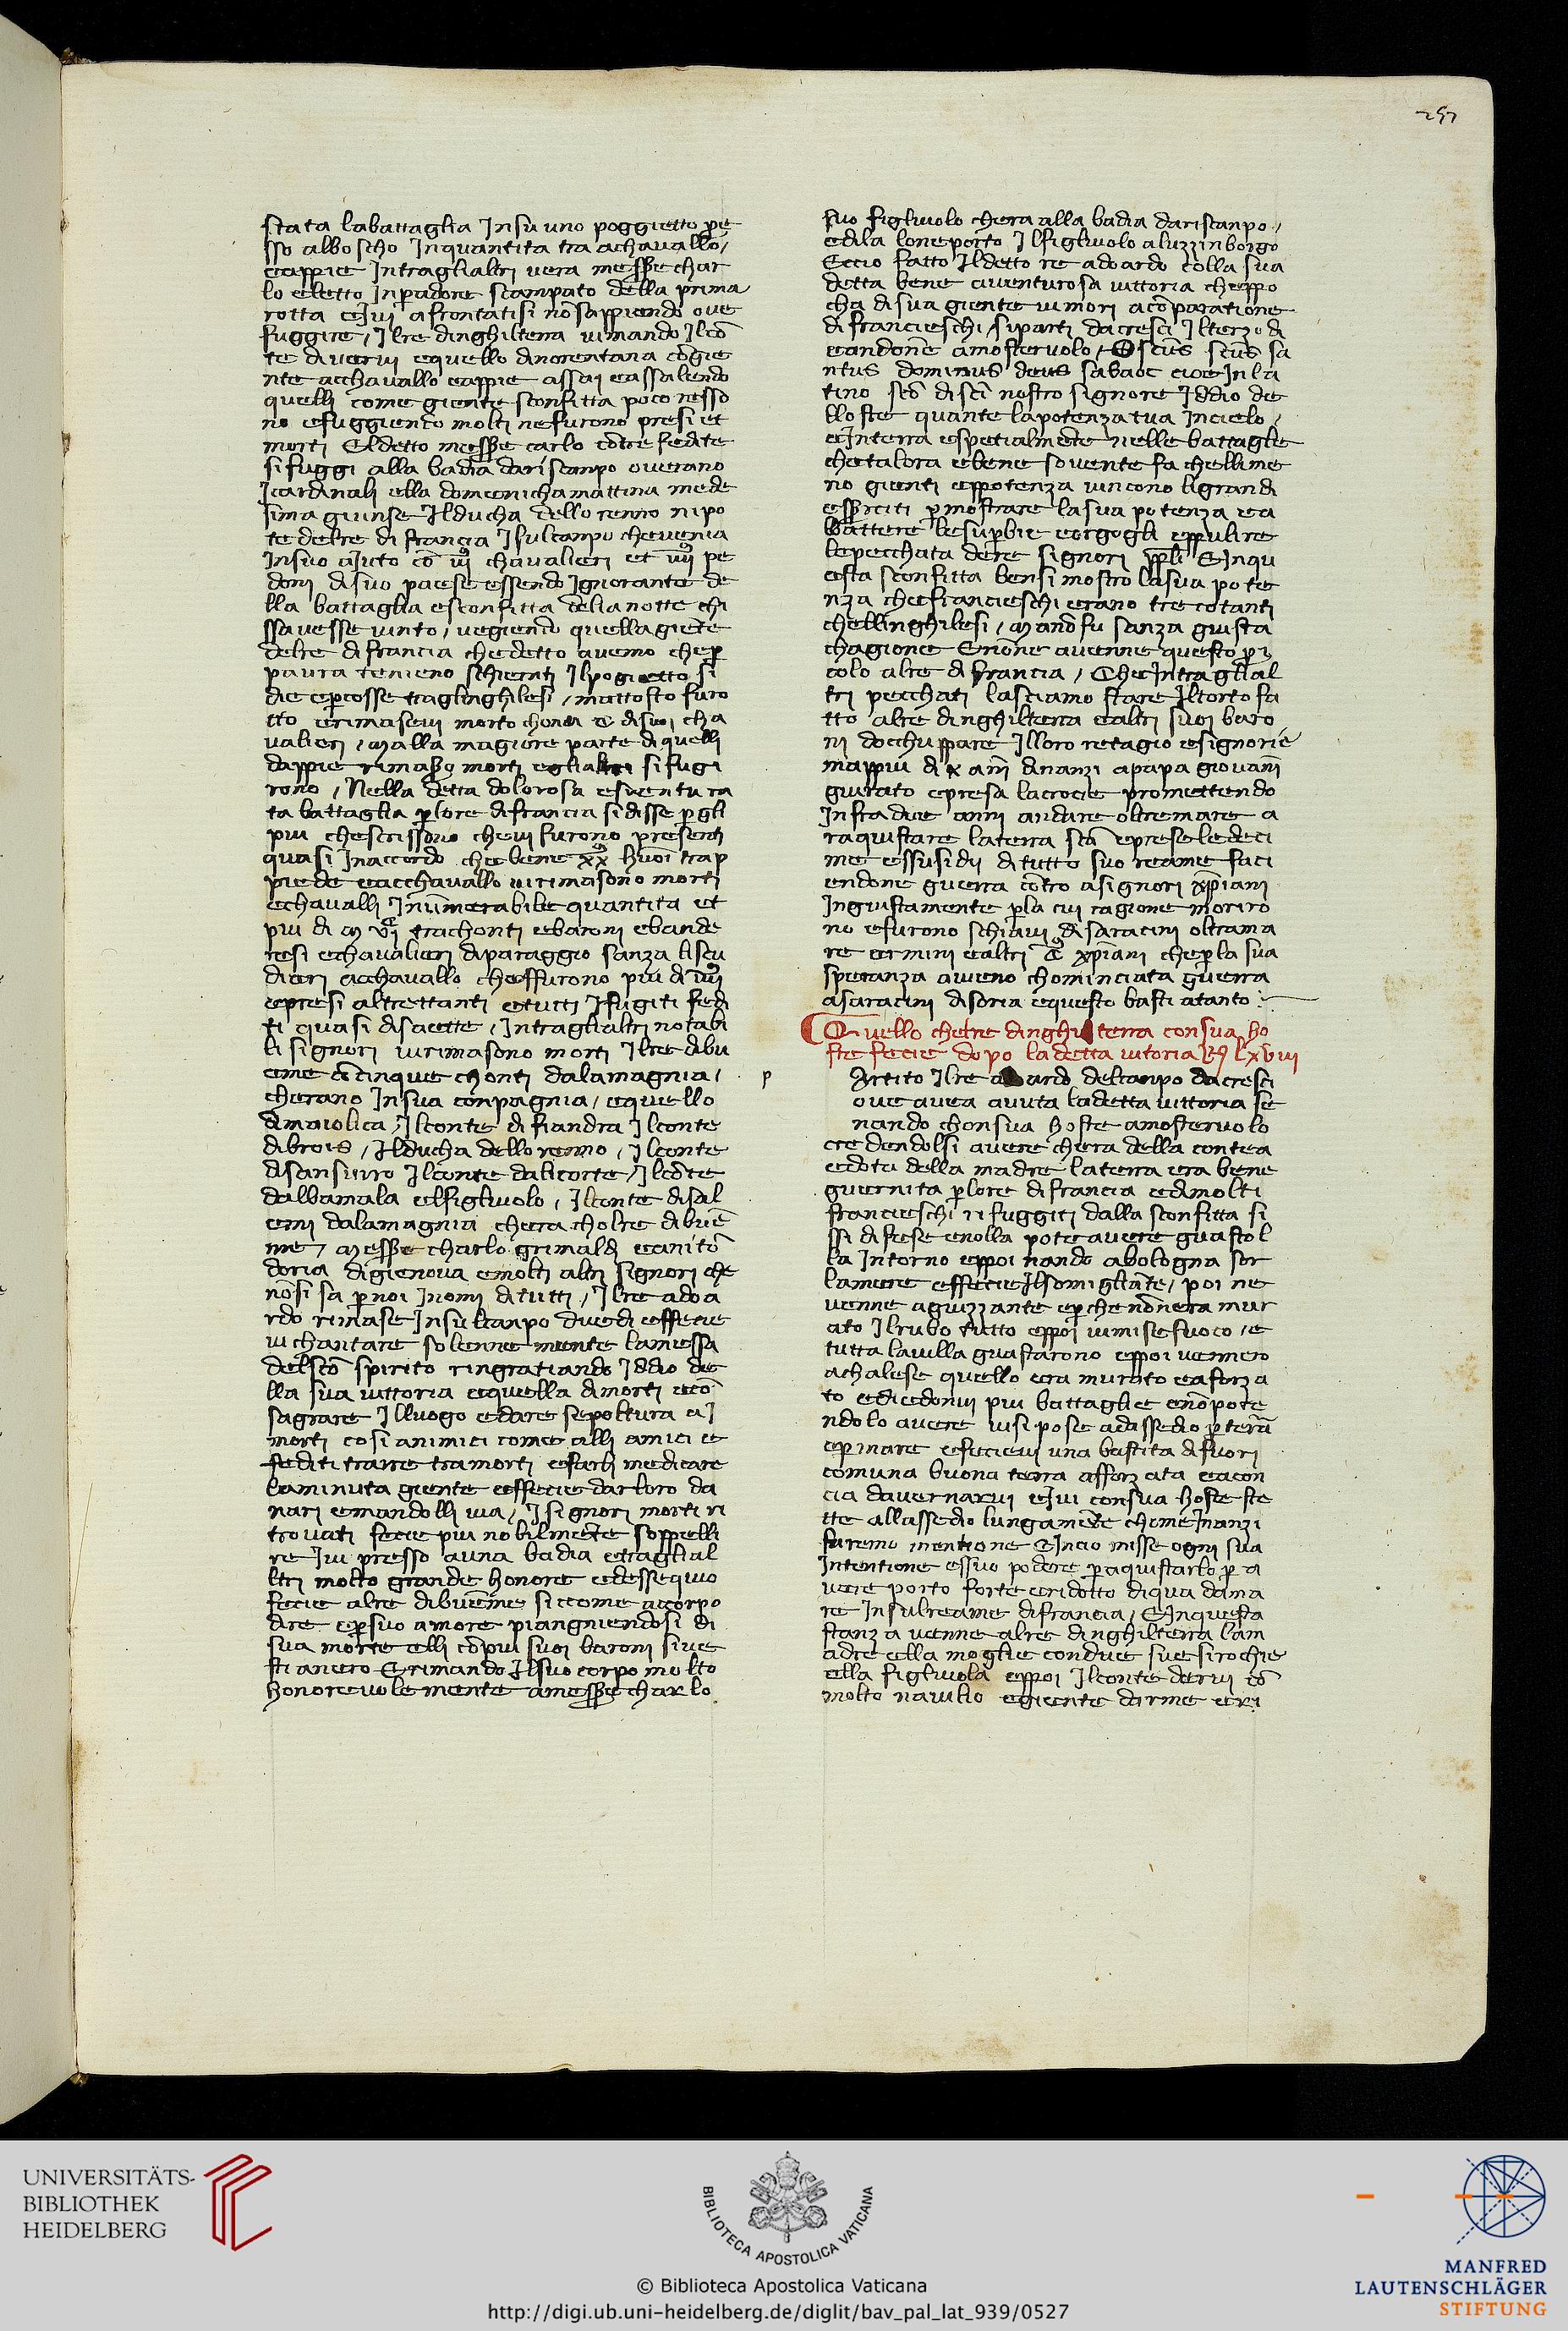 257
stata labattaglia Jnsu uno poggietto p̄e
sso albo scho Jnquantita tra achavallo/
eappie Jntraglialtri vera mess̄e char
lo eletto Jnp̄adore scampato della prima
rotta eJvi afrontatisi nō sappiendo ove
fuggire/ Jlre dinghilterra vimando Jlcō
te di vervi equello dinorentana cōgie
nte acchavallo eappie assai eassalendo
quelli come giente sconfitta poco resso
no efuggiendo molti nefurono presi et
morti Eldetto mess̄e carlo cōtre fedite
sifuggi alla badia dariscanpo overano
Jcardinali ella domenicha mattina mede
sima giunse Jlducha dello renno nipo
te delre di francia Jsulcanpo chevenia
Jnsuo ajuto cō chavalieri et pe
doni disuo paese essendo Jgnorante de
lla battaglia esconfitta dela notte chi
ssavesse vinto/ vegiendo quella giēte
delre di francia chedetto avemo chep̄
paura tenieno schierati Jlpogietto si
die ep̄cosse traglinghilesi/ mattosto furo
tto erimasevi morto chon disuoi cha
valieri/ Malla magiore parte diquelli
dappie rimasono morti eglialtri sifugi
rono/ Nella detta dolorosa esventura
ta battaglia p̄lore difrancia sidisse p̄gli
piu chescrissono chevi furono presenti
quasi Jnaccordo chebene xx huoī trap
piede eacchavallo virimasono morti
echavalli Jnūmerabile quantita et
piu di trachonti ebaroni ebande
resi echavalieri diparaggio sanza liscu
dieri acchavallo cheffurono piu di
epresi altrettanti etutti Jfugiti fedi
ti quasi disaette/ Jntraglialtri notabi
li signori virimasono morti Jlre dibu
eme cōcinque chonti dalamagnia/
cherano Jnsua conpagnia/ equello
dimaiolica/ Jlconte di fiandra Jlconte
dibrois/ Jlducha dellorenno/ Jlconte
disansurro Jlconte dalicorte/ Jlcōte
dalbamala elfigliuolo/ Jlconte disal
emi dalamagnia chera cholre dibuē
me/ Mess̄e charlo grimaldi eanitō
doria digienova emolti altri signori che
nōsi sa p̄noi Jnomi ditutti/ Jlre adoa
rdo rimase Jnsulcanpo duedi effecie
vi chantare solenne mente lamessa
delscō spirito ringratiando Jddio de
lla sua vittoria equella dimorti ecō
sagrare Jlluogo edare sepoltura aJ
morti cosi animici come alli amici e
fediti trarre tramorti efarli medicare
laminuta giente effecie darloro da
nari emandolli via/ Jsignori morti ri
trovati fecie piu nobilmēte soppelli
re Jvi presso auna badia etraglial
ltri molto grande honore edessequio
fecie alre dibuēme siccome accorpo
dire ep̄suo amore piangniendosi di
sua morte elli cōpiu suoi baroni sive
stianero Erimando Jlsuo corpo molto
honorevolemente amess̄e charlo
suo figliuolo chera alla badia dariscanpo/
edila loneporto Jlfigliuolo aluzzinborgo
Eccio fatto Jldetto re adoardo colla sua
detta bene aventurosa vittoria cheppo
cha disua giente vimori acōparatione
difrancieschi/ siparti dacresci Jlterzo di
eandonne amostervolo/ O scūs scūs sa
ntus dominus deus sabaoc cioe Jnla
tino scō disci nostro signore Jddio de
lloste quante lapotenza tua Jncielo/
eJnterra espetialmēte nelle battaglie
chetalora ebene sovente fa chellime
no gienti eppotenza vincono ligrandi
esserciti p̄mostrare lasua potenza ea
battere lesup̄bie eorgogli eppulire
lepecchata dere signori pp̄li EJnqu
esta sconfitta bensi mostro lasua pote
nza chefrancieschi erano tre cotanti
chellinghilesi/ Manō fu sanza giusta
chagione Enōne avenne questo p̄i
colo alre di francia/ CheJntraglial
tri pecchati lasciamo stare Jltorto fa
tto alre dinghilterra ealtri suoi baro
ni docchuppare Jlloro retagio esignorie
mappiu di x anī dinanzi apapa giovanī
giurato epresa lacrocie promettendo
Jnfra due anni andare oltremare a
raquistare laterra scā epreseledeci
me essusidij di tutto suo reame faci
endone guerra cōtro asignori xp̄iani
Jngiustamente p̄la cui cagione moriro
no efurono schiavi disaracini oltrama
re ermini ealtri xp̄iani chep̄la sua
speranza aveno chominciata guerra
asaracini disoria equesto basti atanto
Quello chelre dinghilterra consua ho
ste fecie dopo ladetta vitoria lxviii
p Artito Jlre adoardo delcanpo dacresci
ove avea avuta ladetta vittoria se
nando chonsua hoste amostervolo
credendolsi avere chera della contea
edota della madre laterra era bene
guernita p̄lore difrancia edimolti
francieschi rifuggiti dalla sconfitta si
ssi difese enolla pote avere guastol
la Jntorno eppoi nando abologna sor
lamere effecieJlsomigliāte/ poi ne
venne aguizzante ep̄che nōnera mur
ato Jlrubo tutto eppoi vimisefuoco/ e
tutta lavilla guastarono eppoi vennero
achalese quello era murato eaforza
to ediedonvi piu battaglie enōpote
ndolo avere visi pose adassedio p̄terā
ep̄mare efecievi una bastita difuori
comuna buona terra afforzata eacon
cia davernarvi eJvi consua hoste ste
tte allassedio lungamēte chomeJnanzi
faremo mentione EJncio misse ogni sua
Jntentione essuo podere p̄aquistarlo p̄ a
vere porto forte eridotto diqua dama
re Jnsulreame difrancia/ EJnquesta
stanza venne alre dinghilterra lam
adre ella moglie condue sue sirochie
ella figliuola eppoi Jlconte dervi cō
molto navilio egiente darme eri
UNIVERSITÄTS-
BIBLIOTHEK
HEIDELBERG
BIBLIOTECA APOSTOLICA VATICANA
© Biblioteca Apostolica Vaticana
http://digi.ub.uni-heidelberg.de/diglit/bav_pal_lat_939/0527
MANFRED
LAUTENSCHLÄGER
STIFTUNG